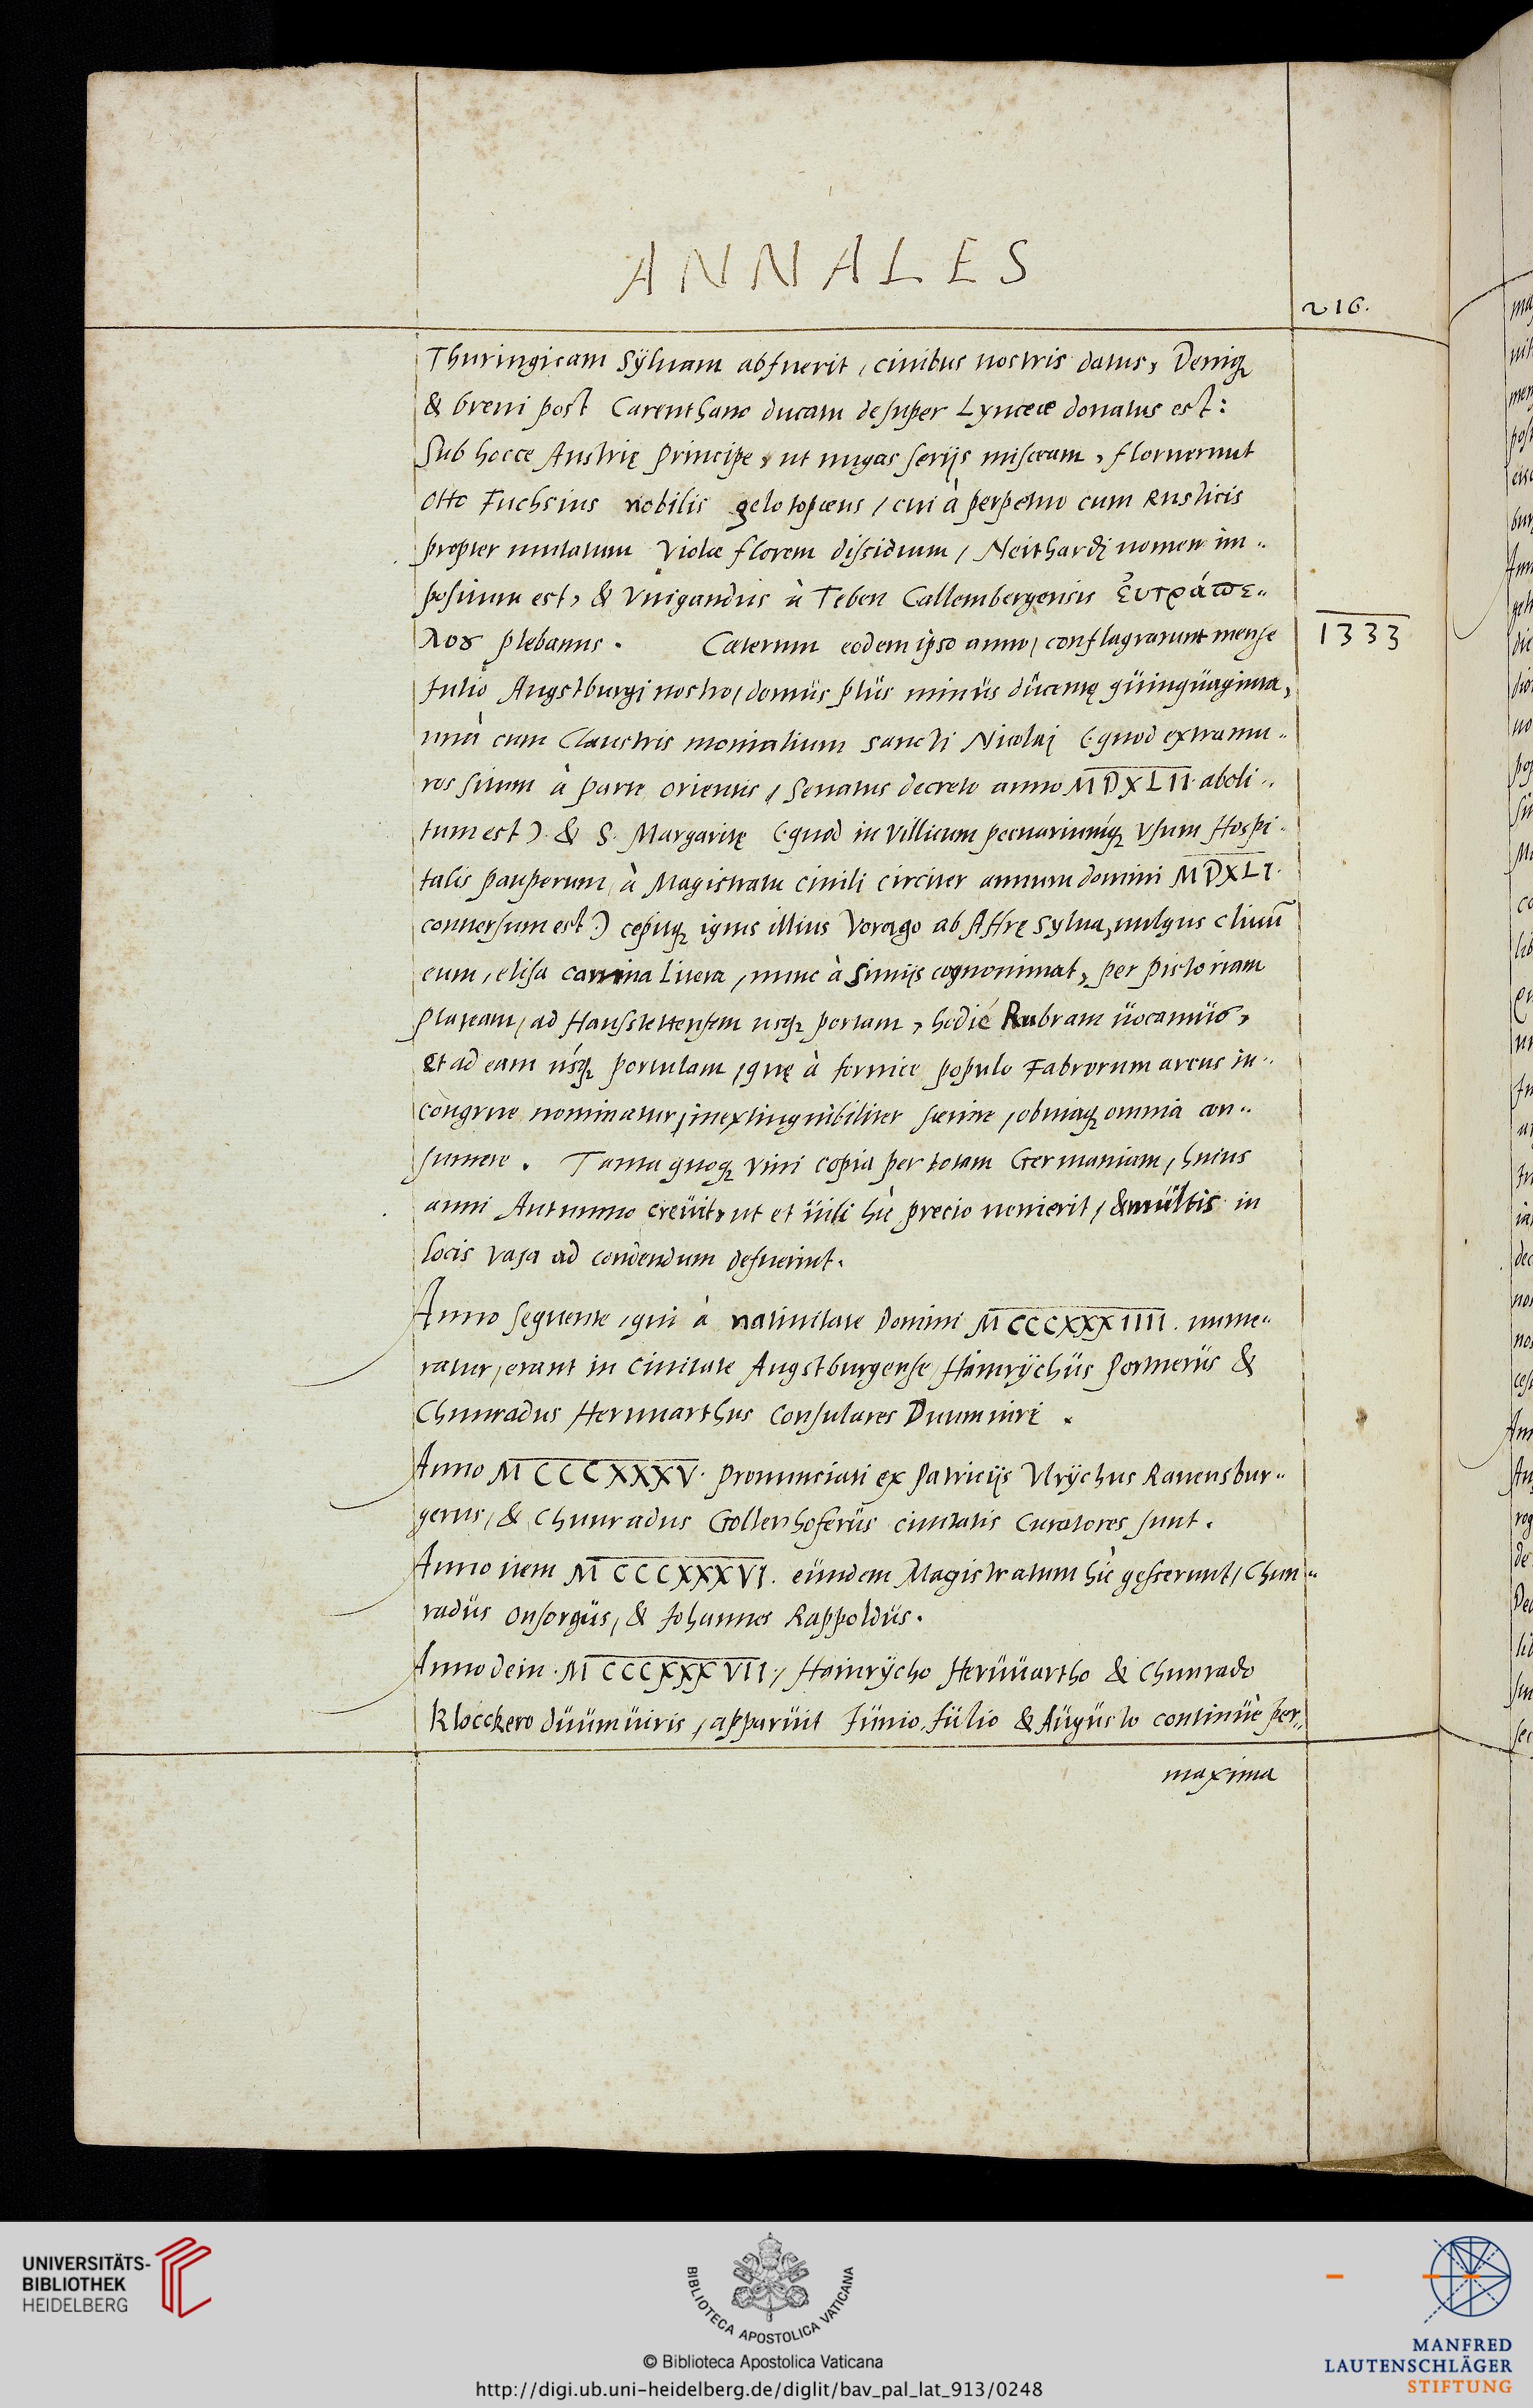 ANNALES
216.
Thuringicam Sÿluam abfuerit, ciuibus nostris datus, Deniqꝫ
& breui post Carenthano ducatu desuper Lynceæ donatus est:
Sub hocce Austrię Principe, ut nugas serijs misceam, floruerunt
Otto Fuchsius nobilis gelotopœus, cui à perpetuo cum Rusticis
propter mutatum Violæ florem dissidium, Neithardi nomen im..
positum est, & Vuigandus à Teben Callembergensis Ἐυτράπε..
λος plebanus. Cæterum eodem ipso anno, conflagrarunt mense
1333
Iulio Augstburgi nostro, domus plus minus ducentę quinquaginta,
unà cum Claustris monialium Sancti Nicolai (quod extra mu..
ros situm à parte orientis, Senatus decreto anno MDXLII aboli..
tum est) & S. Margaritę (quod in Villicum pecuariumqꝫ Vsum Hospi..
talis pauperum, à Magistratu ciuili circiter annum domini MDXLI.
conuersum est.) cepitqꝫ ignis illius Vorago ab Affrę Sylua, uulgus cliuū
eum, elisa canina litera, nunc à Simijs cognominat, per pistoriam
plateam, ad Hausstettensem usqꝫ portam, hodiè Rubram uocamus,
Et ad eam usqꝫ portulam, quę à fornice populo Fabrorum arcus in..
congrue nominatur, inextinguibiliter sæuire, obuiaqꝫ omnia con..
sumere. Tanta quoqꝫ vini copia per totam Germaniam, huius
anni Autumno creuit, ut et uili hìc precio uenierit, & multis in
locis vasa ad condendum defuerint.
Anno sequente, qui à natiuitate Domini MCCCXXXIIII. nume..
ratur, erant in Ciuitate Augstburgense Hainrÿchus Portnerus &
Chunradus Heruuarthus Consulares Duumuiri.
Anno MCCCXXXV. pronunciati ex Patricijs Vlrÿchus Rauensbur..
gerus, & Chunradus Gollenhoferus ciuitatis Curatores sunt.
Anno item MCCCXXXVI. eundem Magistratum hìc gesserunt, Chun..
radus Onsorgus, & Iohannes Rappoldus.
Anno dein. MCCCXXXVII., Hainrÿcho Heruuartho & Chunrado
Klocckero duumuiris, apparuit Iunio, Iulio & Augusto continuè per..
maxima
UNIVERSITÄTS-
BIBLIOTHEK
HEIDELBERG
BIBLIOTECA APOSTOLICA VATICANA
© Biblioteca Apostolica Vaticana
http://digi.ub.uni-heidelberg.de/diglit/bav_pal_lat_913/0248
MANFRED
LAUTENSCHLÄGER
STIFTUNG